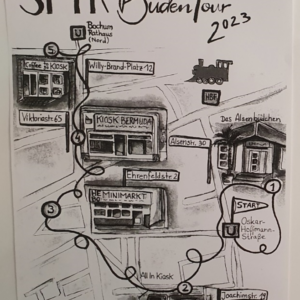 BudenTour
2023
U
Bochum
Rathaus
(Nord)
5
KIOSK
Willy-Brand-Platz 12
Viktoriastr. 65
KIOSK BERMUDA
HBF
Das Alsenbüdchen
Alsenstr. 30
4
Ehrenfeldstr. 2
MINIMARKT
3
1
START
U
Oskar-
Hoffmann-
Straße
All In Kiosk
2
Joachimstr. 19